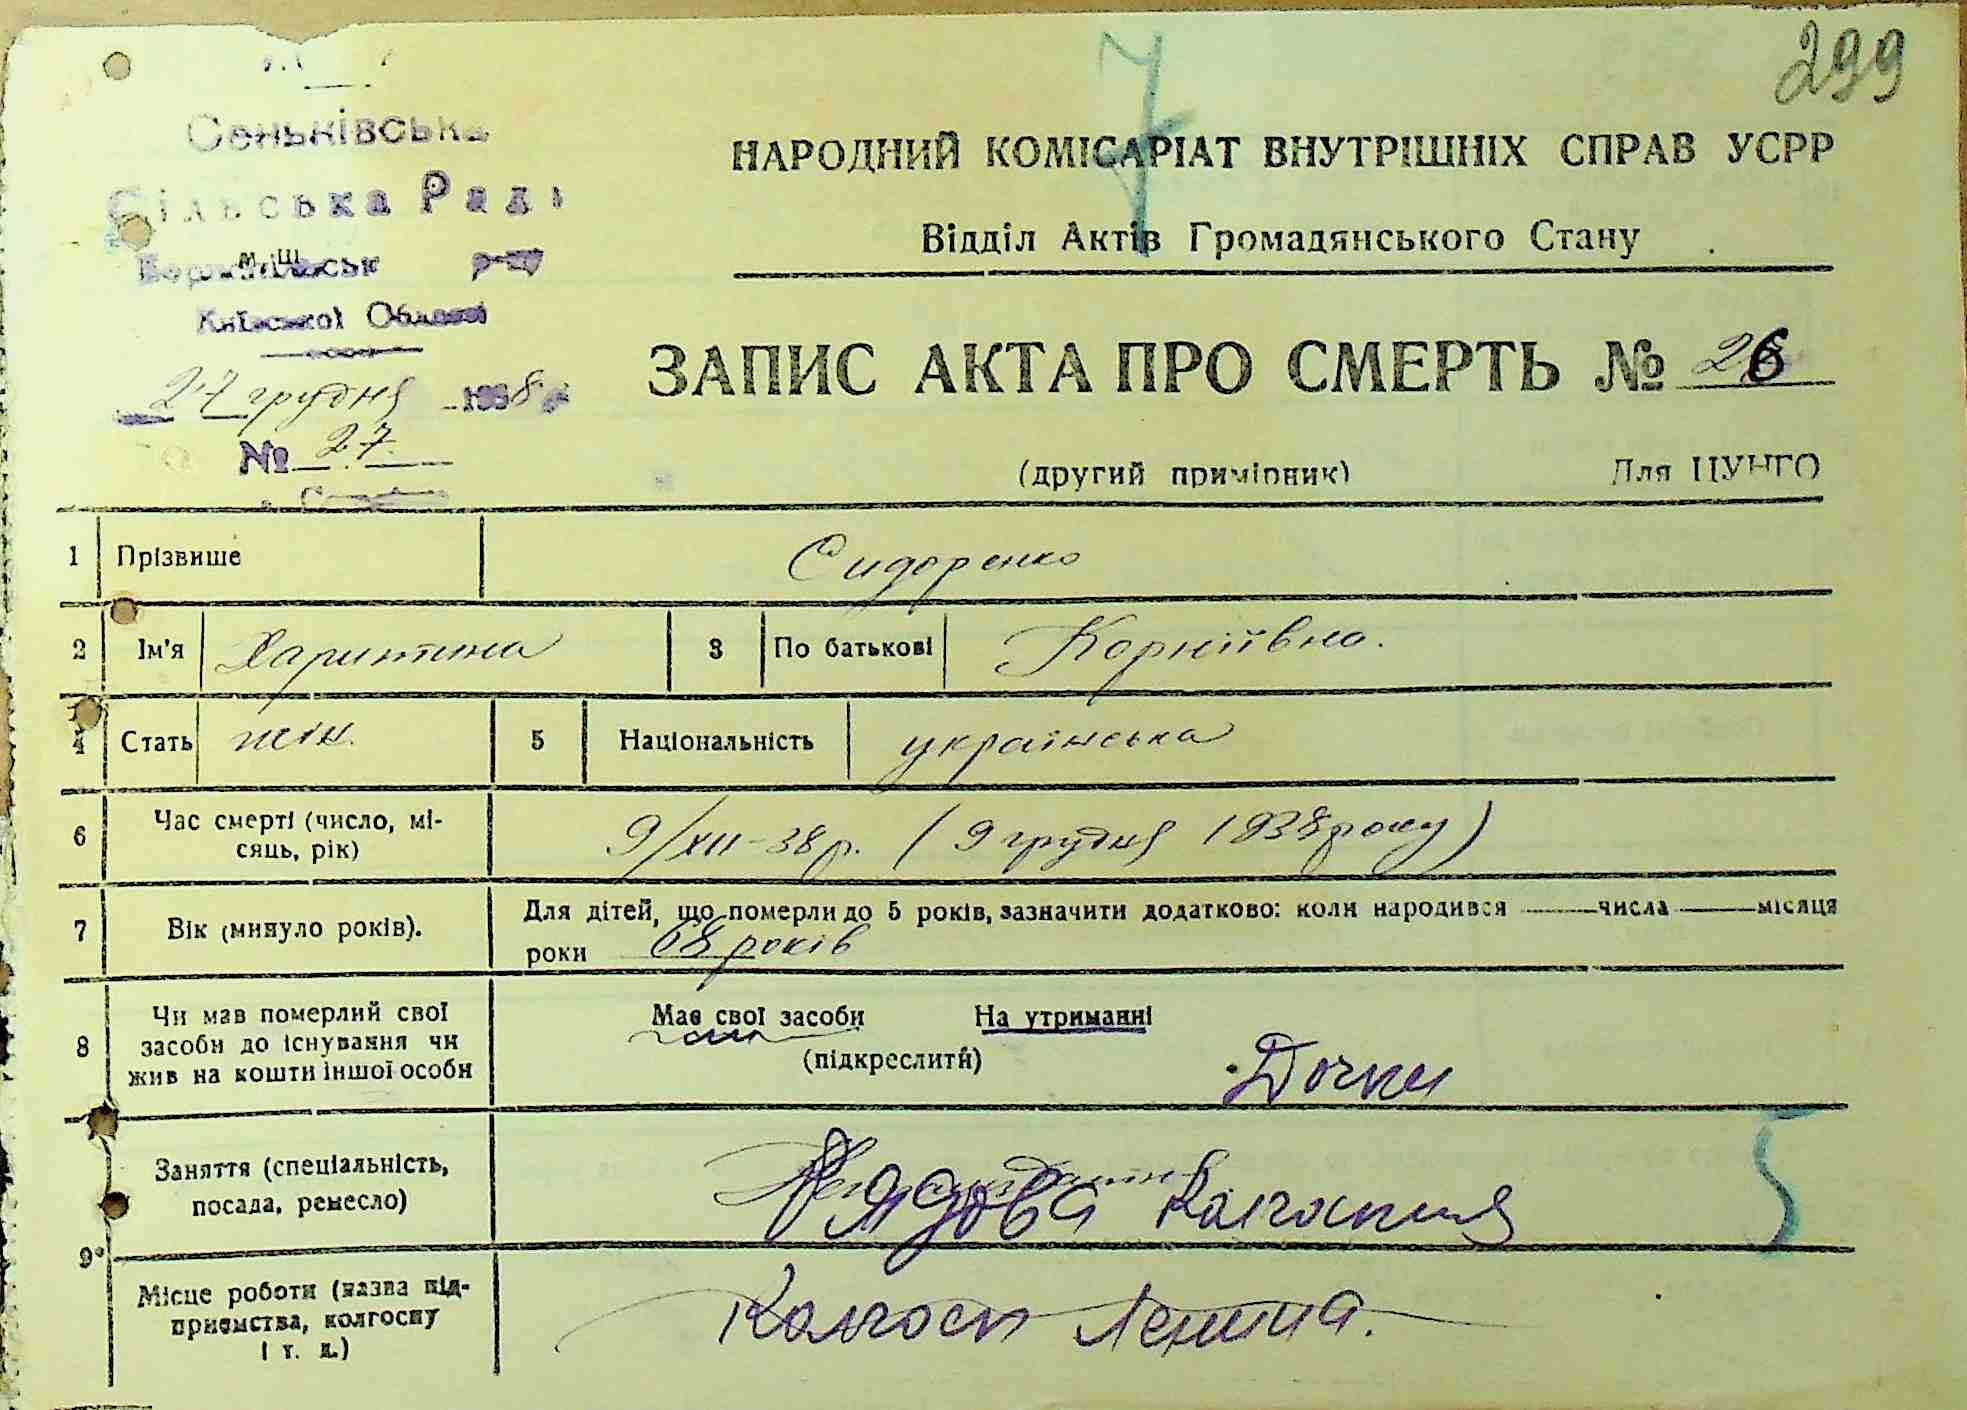 299
7
Сеньківська
Сільська Рада
Київської Області
27 грудня 1938
№ 27.
НАРОДНИЙ КОМІСАРІАТ ВНУТРІШНІХ СПРАВ УСРР
Відділ Актів Громадянського Стану
ЗАПИС АКТА ПРО СМЕРТЬ № 26
(другий примірник) Для ЦУНГО
1 Прізвище Сидоренко
2 Ім'я Харитина 3 По батькові Корніївна.
4 Стать жін. 5 Національність українська
6 Час смерті (число, мі-
сяць, рік) 9/XII-38 р. (9 грудня 1938 року)
7 Вік (минуло років). Для дітей, що померли до 5 років, зазначити додатково: коли народився числа місяця
роки 68 років
8 Чи мав померлий свої
засоби до існування чи
жив на кошти іншої особи
Має свої засоби На утриманні
(підкреслити)
Дочки
9 Заняття (спеціальність,
посада, ремесло)
Рядова Колгоспниця
5
Місце роботи (назва під-
приємства, колгоспу
і т. д.)
Колгосп Леніна.